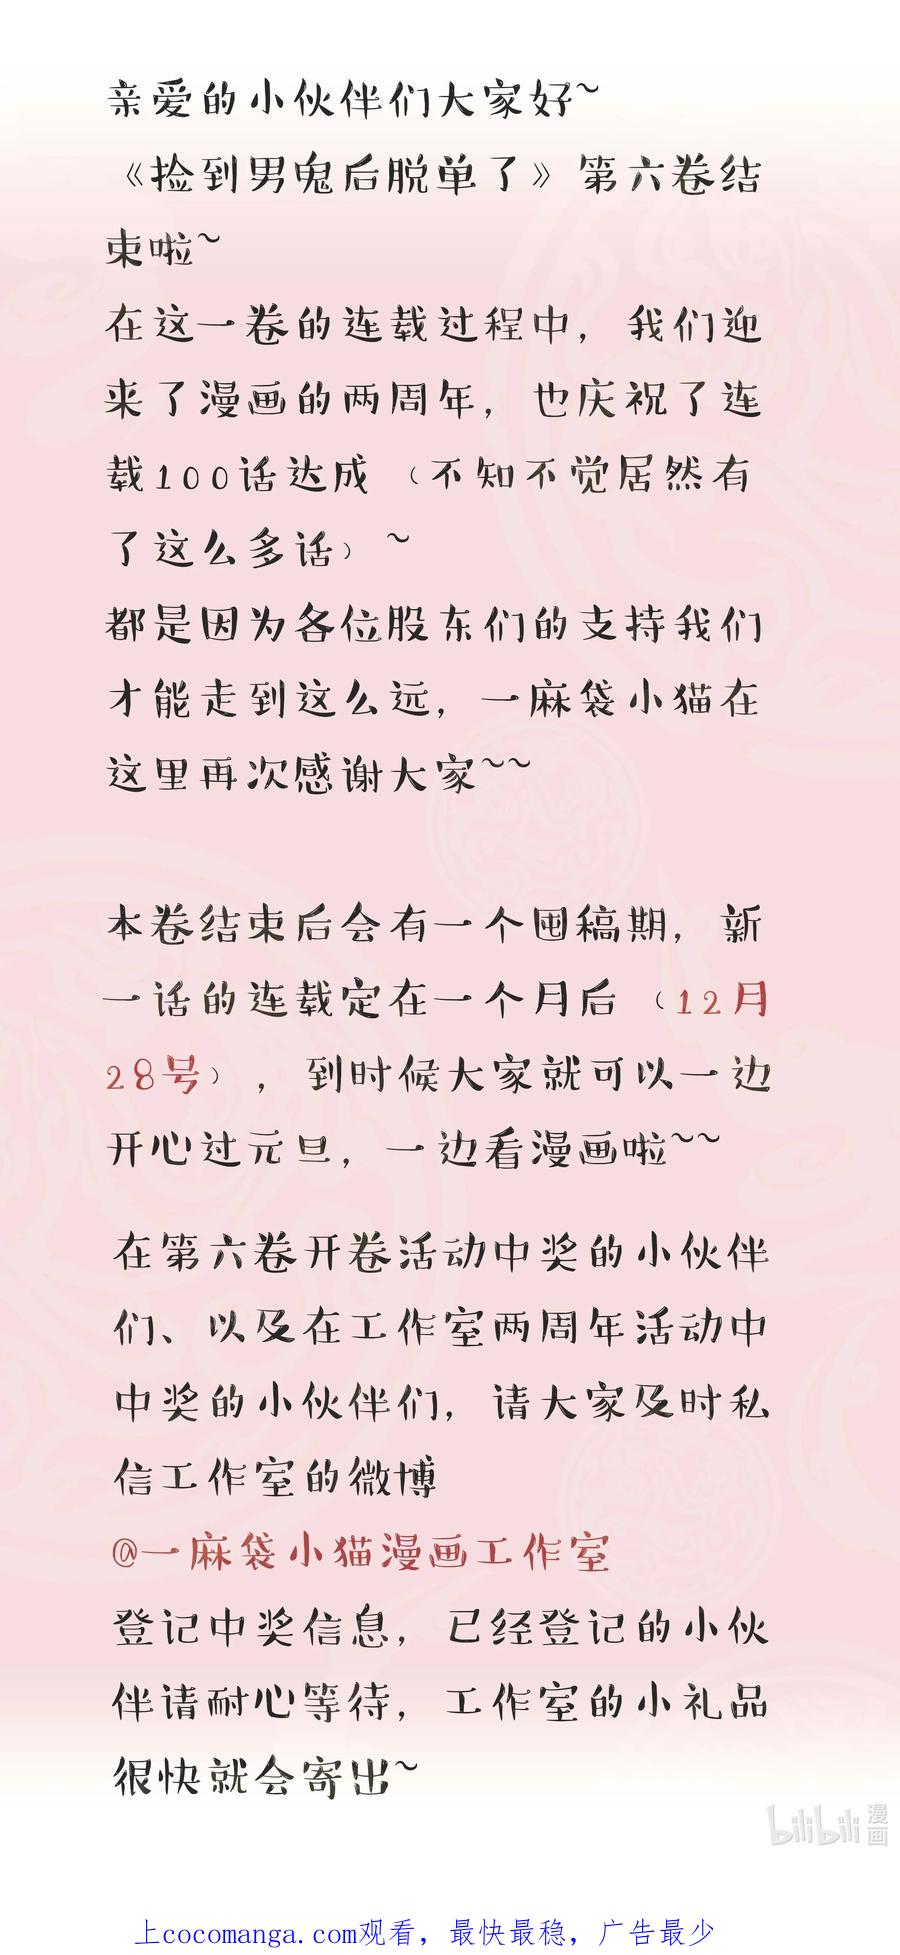 亲爱的小伙伴们大家好~
《捡到男鬼后脱单了》第六卷结
束啦~
在这一卷的连载过程中，我们迎
来了漫画的两周年，也庆祝了连
载100话达成（不知不觉居然有
了这么多话）~
都是因为各位股东们的支持我们
才能走到这么远，一麻袋小猫在
这里再次感谢大家~~
本卷结束后会有一个囤稿期，新
一话的连载定在一个月后（12月
28号），到时候大家就可以一边
开心过元旦，一边看漫画啦~~
在第六卷开卷活动中奖的小伙伴
们、以及在工作室两周年活动中
中奖的小伙伴们，请大家及时私
信工作室的微博
@一麻袋小猫漫画工作室
登记中奖信息，已经登记的小伙
伴请耐心等待，工作室的小礼品
很快就会寄出~
bilibili 漫画
上cocomanga.com观看，最快最稳，广告最少